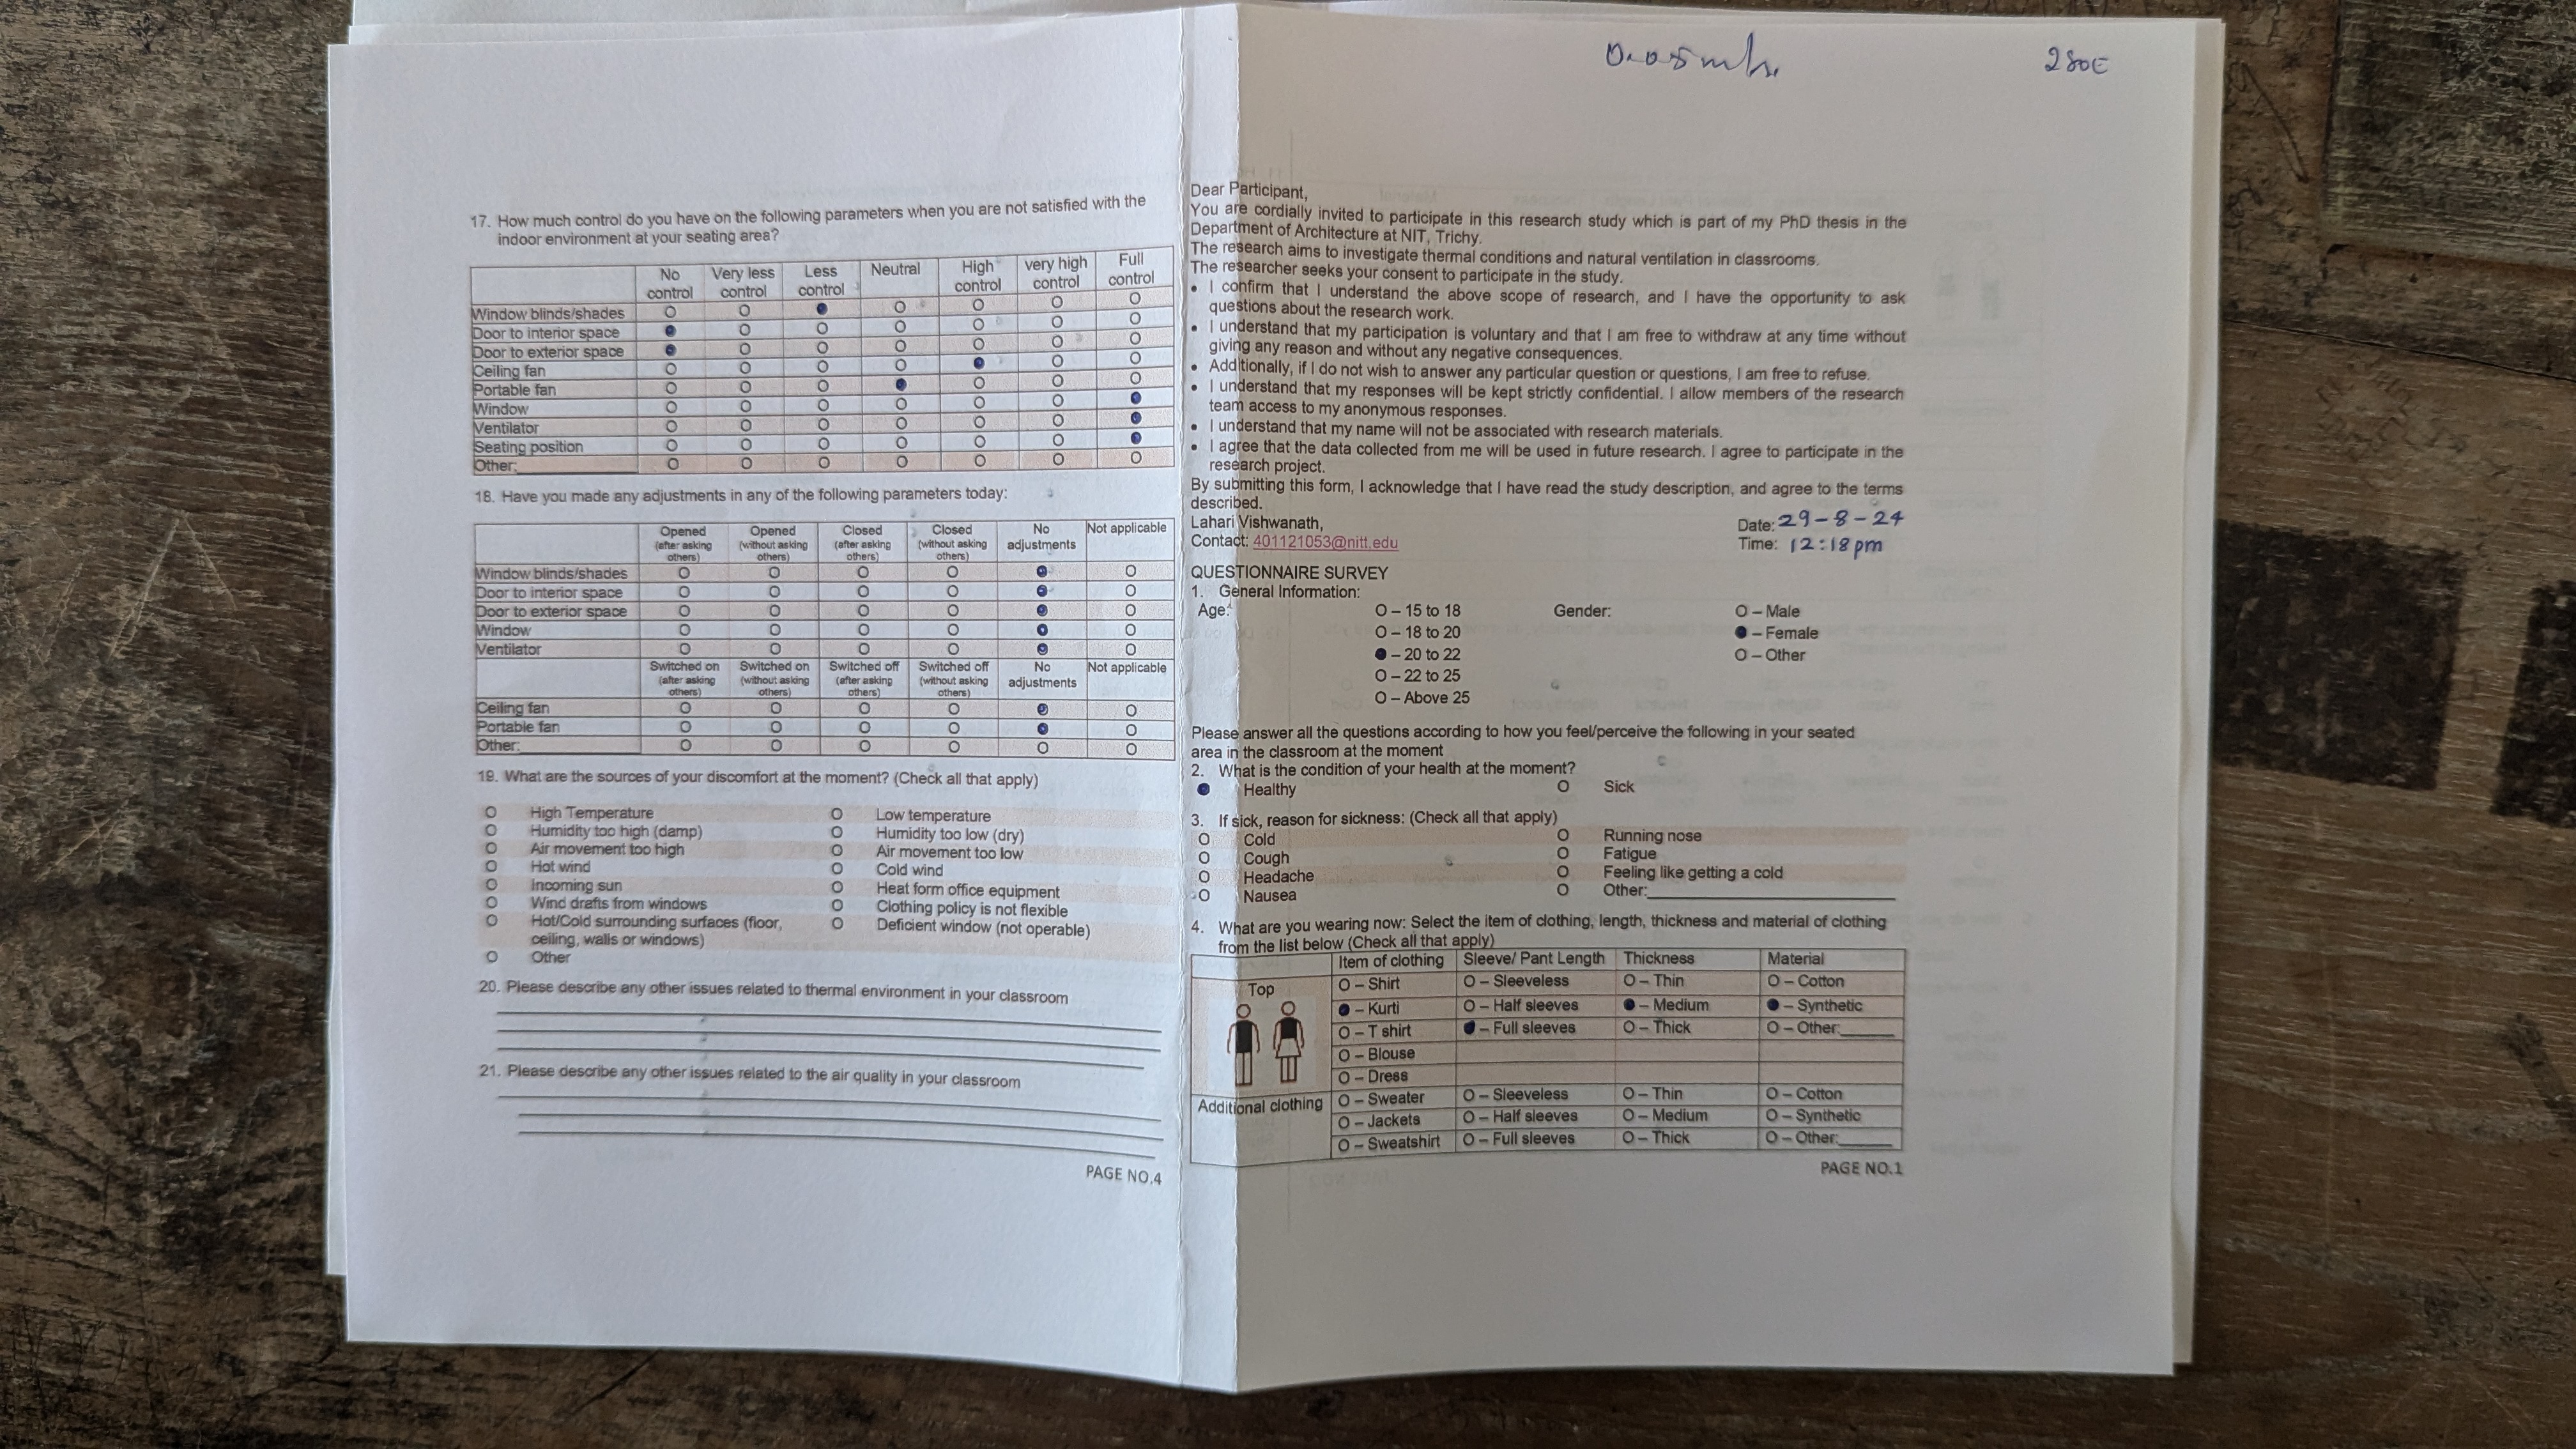 17. How much control do you have on the following parameters when you are not satisfied with the
indoor environment at your seating area?
No control Very less control Less control Neutral High control very high control Full control
Window blinds/shades O O ● O O O O
Door to interior space ● O O O O O O
Door to exterior space ● O O O O O O
Ceiling fan O O O O ● O O
Portable fan O O O ● O O O
Window O O O O O O ●
Ventilator O O O O O O ●
Seating position O O O O O O ●
Other:________ O O O O O O O
18. Have you made any adjustments in any of the following parameters today:
Opened (after asking others) Opened (without asking others) Closed (after asking others) Closed (without asking others) No adjustments Not applicable
Window blinds/shades O O O O ● O
Door to interior space O O O O ● O
Door to exterior space O O O O ● O
Window O O O O ● O
Ventilator O O O O ● O
Switched on (after asking others) Switched on (without asking others) Switched off (after asking others) Switched off (without asking others) No adjustments Not applicable
Ceiling fan O O O O ● O
Portable fan O O O O ● O
Other:________ O O O O O O
19. What are the sources of your discomfort at the moment? (Check all that apply)
O High Temperature O Low temperature
O Humidity too high (damp) O Humidity too low (dry)
O Air movement too high O Air movement too low
O Hot wind O Cold wind
O Incoming sun O Heat form office equipment
O Wind drafts from windows O Clothing policy is not flexible
O Hot/Cold surrounding surfaces (floor, O Deficient window (not operable)
ceiling, walls or windows)
O Other
20. Please describe any other issues related to thermal environment in your classroom
21. Please describe any other issues related to the air quality in your classroom
PAGE NO.4
280E
Dear Participant,
You are cordially invited to participate in this research study which is part of my PhD thesis in the
Department of Architecture at NIT, Trichy.
The research aims to investigate thermal conditions and natural ventilation in classrooms.
The researcher seeks your consent to participate in the study.
• I confirm that I understand the above scope of research, and I have the opportunity to ask
questions about the research work.
• I understand that my participation is voluntary and that I am free to withdraw at any time without
giving any reason and without any negative consequences.
• Additionally, if I do not wish to answer any particular question or questions, I am free to refuse.
• I understand that my responses will be kept strictly confidential. I allow members of the research
team access to my anonymous responses.
• I understand that my name will not be associated with research materials.
• I agree that the data collected from me will be used in future research. I agree to participate in the
research project.
By submitting this form, I acknowledge that I have read the study description, and agree to the terms
described.
Lahari Vishwanath, Date: 29-8-24
Contact: 401121053@nitt.edu Time: 12:18pm
QUESTIONNAIRE SURVEY
1. General Information:
Age: O – 15 to 18 Gender: O – Male
O – 18 to 20 ● – Female
● – 20 to 22 O – Other
O – 22 to 25
O – Above 25
Please answer all the questions according to how you feel/perceive the following in your seated
area in the classroom at the moment
2. What is the condition of your health at the moment?
● Healthy O Sick
3. If sick, reason for sickness: (Check all that apply)
O Cold O Running nose
O Cough O Fatigue
O Headache O Feeling like getting a cold
O Nausea O Other:________
4. What are you wearing now: Select the item of clothing, length, thickness and material of clothing
from the list below (Check all that apply)
Item of clothing Sleeve/ Pant Length Thickness Material
Top O – Shirt O – Sleeveless O – Thin O – Cotton
● – Kurti O – Half sleeves ● – Medium ● – Synthetic
O – T shirt ● – Full sleeves O – Thick O – Other:______
O – Blouse
O – Dress
Additional clothing O – Sweater O – Sleeveless O – Thin O – Cotton
O – Jackets O – Half sleeves O – Medium O – Synthetic
O – Sweatshirt O – Full sleeves O – Thick O – Other:______
PAGE NO.1